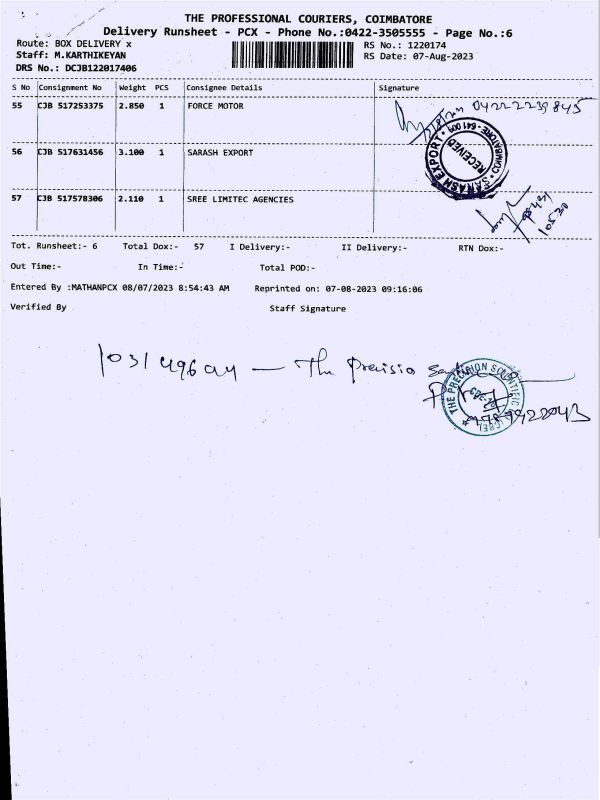 THE PROFESSIONAL COURIERS, COIMBATORE
Delivery Runsheet - PCX - Phone No.:0422-3505555 - Page No.:6
Route: BOX DELIVERY x
RS No.: 1220174
Staff: M.KARTHIKEYAN
RS Date: 07-Aug-2023
DRS No.: DCJB122017406
S No Consignment No Weight PCS Consignee Details Signature
55 CJB 517253375 2.850 1 FORCE MOTOR
04222239845
56 CJB 517631456 3.100 1 SARASH EXPORT
SARASH EXPORT * COIMBATORE - 641 009 *
RECEIVED
57 CJB 517578306 2.110 1 SREE LIMITEC AGENCIES
Tot. Runsheet:- 6 Total Dox:- 57 I Delivery:- II Delivery:- RTN Dox:-
Out Time:- In Time:- Total POD:-
Entered By :MATHANPCX 08/07/2023 8:54:43 AM Reprinted on: 07-08-2023 09:16:06
Verified By Staff Signature
The Precisio
THE PRECISION SCIENTIFIC